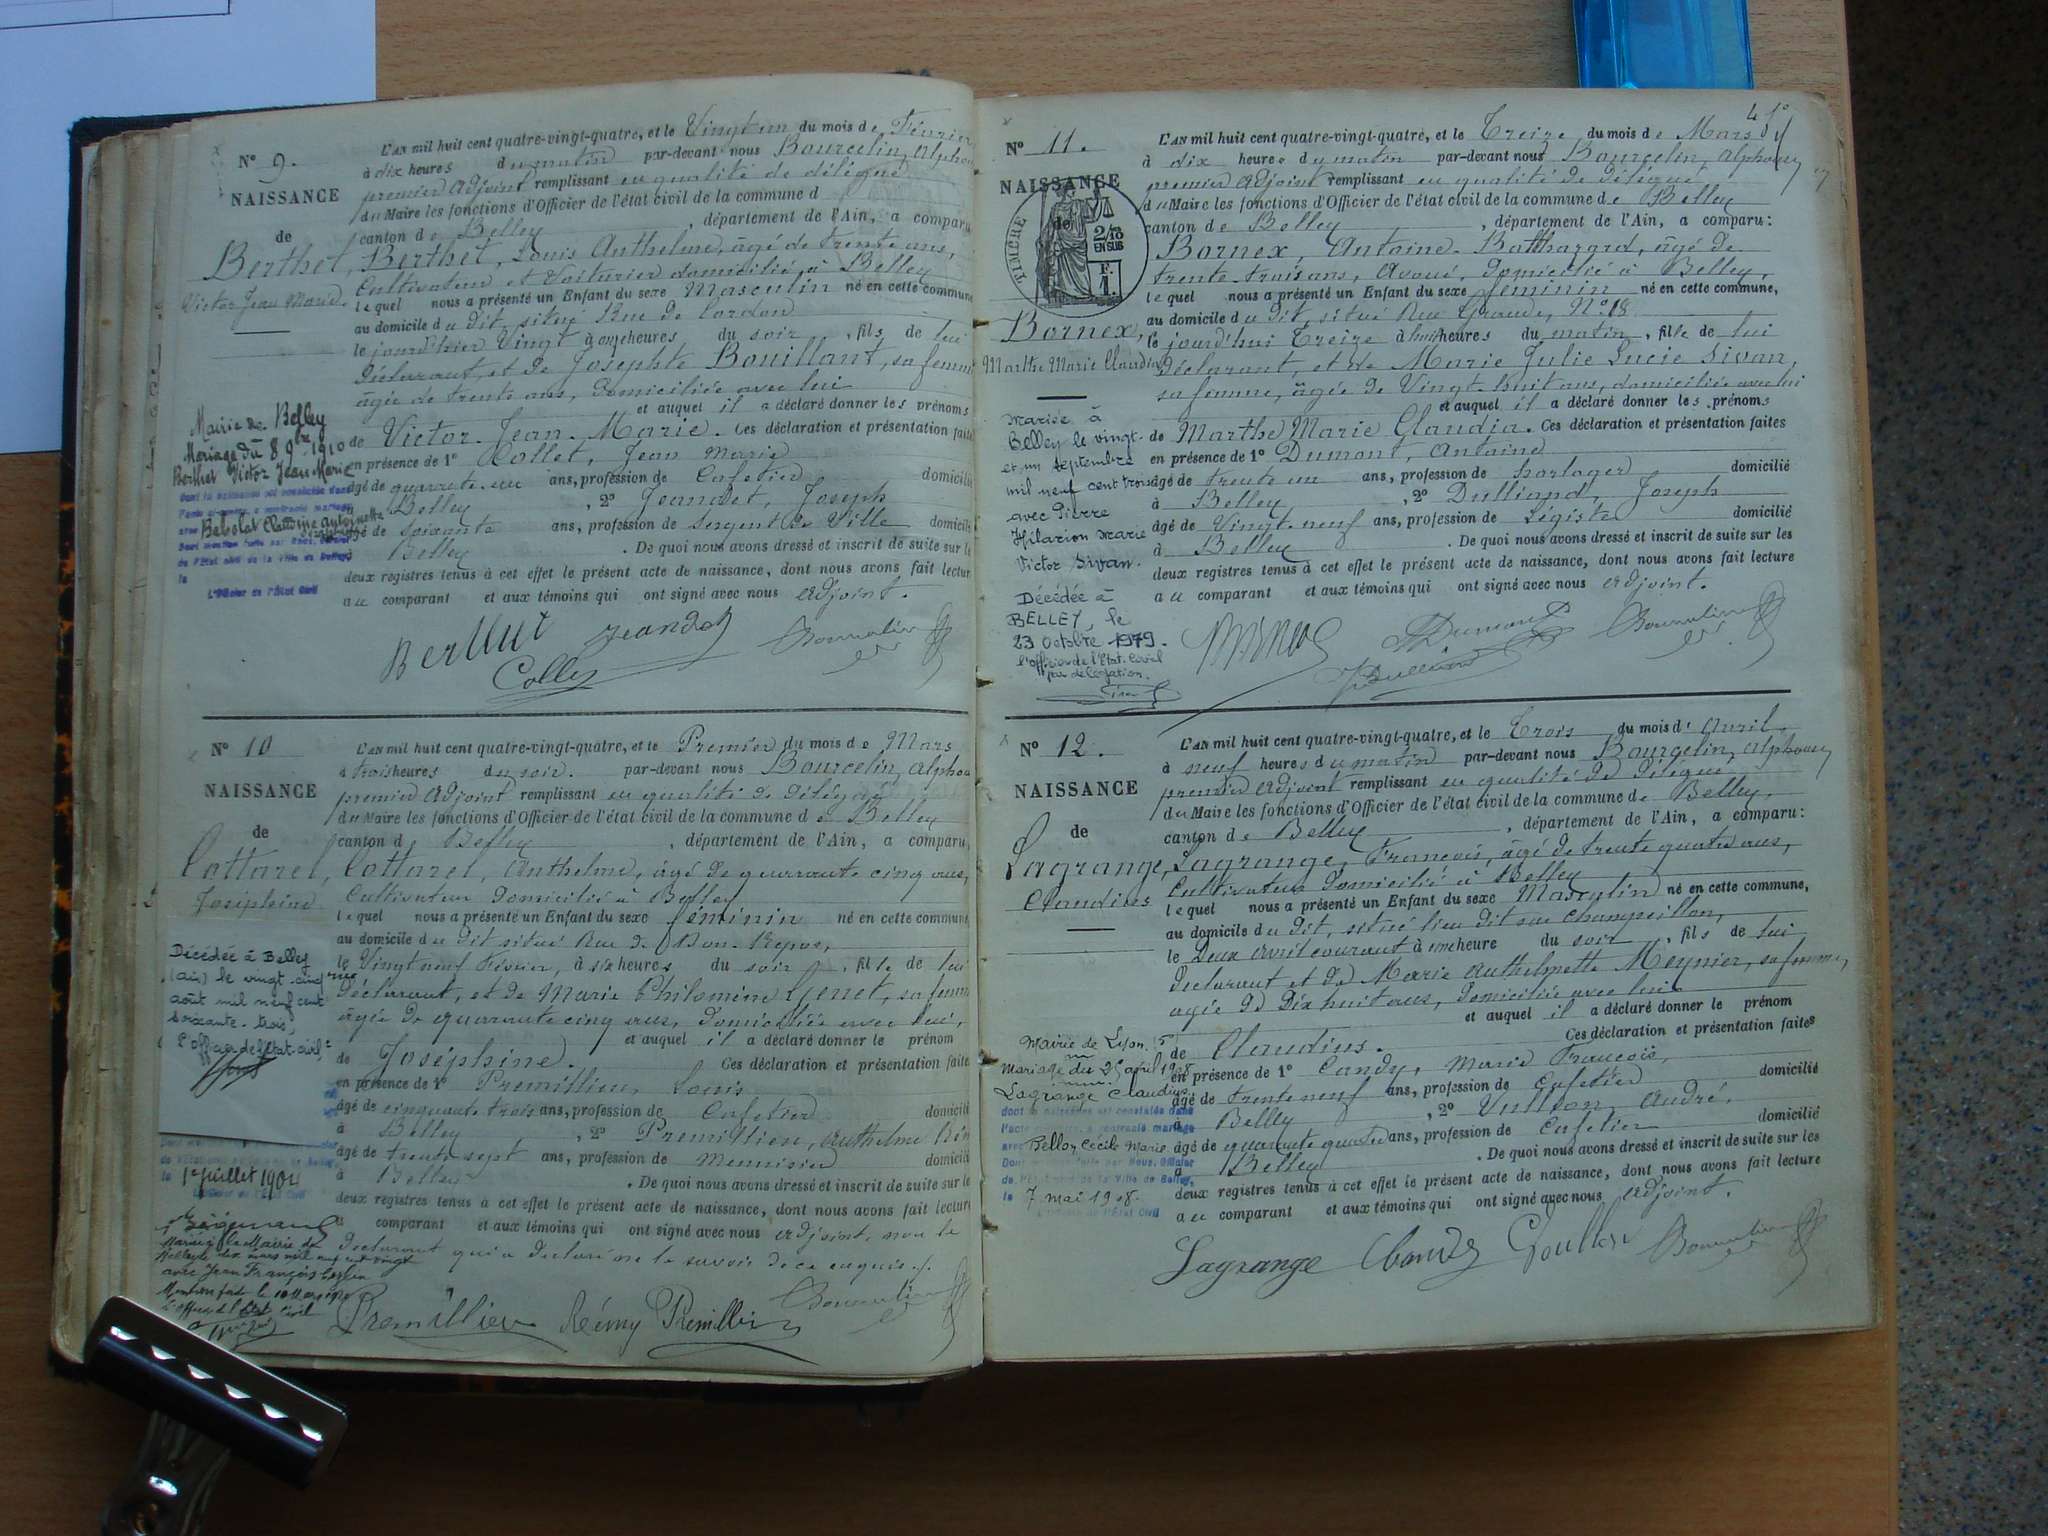 N° 9.
NAISSANCE
de
Berthet,
Victor Jean Marie
L'AN mil huit cent quatre-vingt-quatre, et le Vingt un du mois de Février
à dix heures du matin par-devant nous Bourcelin, Alphon
premier Adjoint remplissant en qualité de délégué
du Maire les fonctions d'Officier de l'état civil de la commune d
canton de Belley, département de l'Ain, a comparu
Berthet, Louis Anthelme, âgé de trente ans,
Cultivateur et Voiturier domicilié à Belley
lequel nous a présenté un Enfant du sexe Masculin né en cette commune
au domicile du dit, situé Rue de Lordon
le jourd'hier Vingt à onze heures du soir, fils de lui
Déclarant, et de Josephte Bouillant, sa femme
âgée de trente ans, domiciliée avec lui
et auquel il a déclaré donner les prénoms
de Victor-Jean-Marie. Ces déclaration et présentation faites
en présence de 1° Collet, Jean Marie
âgé de quarante-un ans, profession de Cafetier domicilié
à Belley, 2° Jeandet, Joseph
âgé de soixante ans, profession de Sergent de Ville domicilié
à Belley. De quoi nous avons dressé et inscrit de suite sur le
deux registres tenus à cet effet le présent acte de naissance, dont nous avons fait lecture
au comparant et aux témoins qui ont signé avec nous Adjoint.
Mairie de Belley
Mariage du 8 9bre 1910
Berthet Victor Jean Marie
dont la naissance est constatée dans
l'acte ci-contre, a contracté mariage
avec Claudine Antoinette
de l'État civil de la Ville de Belley
le
L'Officier de l'État Civil
Berthet Jeandet
Collet
N° 10
NAISSANCE
de
Cottarel,
Joséphine
L'AN mil huit cent quatre-vingt-quatre, et le Premier du mois de Mars
à trois heures du soir. par-devant nous Bourcelin, Alphon
premier Adjoint remplissant en qualité de délégué
du Maire les fonctions d'Officier de l'état civil de la commune de Belley
canton de Belley, département de l'Ain, a comparu
Cottarel, Anthelme, âgé de quarante cinq ans,
Cultivateur domicilié à Belley
lequel nous a présenté un Enfant du sexe féminin né en cette commune
au domicile du dit situé Rue du Bon-Repos,
le Vingt neuf Février, à six heures du soir, fille de lui
Déclarant, et de Marie Philomène Genet, sa femme
âgée de quarante cinq ans, domiciliée avec lui,
et auquel il a déclaré donner le prénom
de Joséphine. Ces déclaration et présentation faites
en présence de 1° Premillieu, Louis
âgé de cinquante trois ans, profession de Cafetier domicilié
à Belley, 2° Premillieu, Anthelme Rém
âgé de trente sept ans, profession de Menuisier domicilié
à Belley. De quoi nous avons dressé et inscrit de suite sur le
deux registres tenus à cet effet le présent acte de naissance, dont nous avons fait lecture
comparant et aux témoins qui ont signé avec nous adjoint, non le
Déclarant qui a déclaré ne le savoir de ce enquis.
Décédée à Belley
(Ain) le vingt-cinq
août mil neuf cent
soixante-trois,
l'officier de l'état-civil
1er juillet 1904
Mariée à la Mairie de
Belley le dix mars mil neuf cent vingt
avec Jean François
Mention faite le 10 Mars 1920
l'Officier de l'État Civil
Premillieu Rémy Premillieu
N° 11.
NAISSANCE
de
TIMBRE
2/10
EN SUS
F.
1.
Bornex,
Marthe Marie Claudia
L'AN mil huit cent quatre-vingt-quatre, et le Treize du mois de Mars
à dix heures du matin par-devant nous Bourcelin, Alphonse
premier Adjoint remplissant en qualité de délégué
du Maire les fonctions d'Officier de l'état civil de la commune de Belley
canton de Belley, département de l'Ain, a comparu:
Bornex, Antoine-Balthazard, âgé de
trente-trois ans, Avoué, domicilié à Belley,
lequel nous a présenté un Enfant du sexe féminin né en cette commune,
au domicile du dit, situé Rue Grande, N° 18
le jourd'hui Treize à huit heures du matin, fille de lui
Déclarant, et de Marie Julie Lucie Sivan,
sa femme, âgée de Vingt-huit ans, domiciliée avec lui
et auquel il a déclaré donner les prénoms
de Marthe Marie Claudia. Ces déclaration et présentation faites
en présence de 1° Dumont, Antoine
âgé de trente un ans, profession de horloger domicilié
à Belley, 2° Dulliand, Joseph
âgé de Vingt-neuf ans, profession de Légiste domicilié
à Belley. De quoi nous avons dressé et inscrit de suite sur les
deux registres tenus à cet effet le présent acte de naissance, dont nous avons fait lecture
au comparant et aux témoins qui ont signé avec nous Adjoint.
Mariée à
Belley le vingt-
et un septembre
mil neuf cent trois
avec Pierre
Hilarion Marie
Victor Sivan.
Décédée à
BELLEY, le
23 octobre 1979.
l'Officier de l'Etat-Civil
par délégation.
Dumont
J. Dulliand
N° 12.
NAISSANCE
de
Lagrange,
Claudius
L'AN mil huit cent quatre-vingt-quatre, et le Trois du mois d'Avril
à neuf heures du matin par-devant nous Bourcelin, Alphonse
premier Adjoint remplissant en qualité de délégué
du Maire les fonctions d'Officier de l'état civil de la commune de Belley,
canton de Belley, département de l'Ain, a comparu:
Lagrange, François, âgé de trente quatre ans,
Cultivateur domicilié à Belley
lequel nous a présenté un Enfant du sexe Masculin né en cette commune,
au domicile du dit, situé lieu dit sur Champeillon,
le Deux Avril courant à une heure du soir, fils de lui
déclarant et de Marie Anthelmette Meynier, sa femme,
âgée de Dix huit ans, domiciliée avec lui
et auquel il a déclaré donner le prénom
de Claudius. Ces déclaration et présentation faites
en présence de 1° Candy, Marie François,
âgé de trente neuf ans, profession de Cafetier domicilié
à Belley, 2° Vullion, André,
âgé de quarante quatre ans, profession de Cafetier domicilié
à Belley. De quoi nous avons dressé et inscrit de suite sur les
deux registres tenus à cet effet le présent acte de naissance, dont nous avons fait lecture
au comparant et aux témoins qui ont signé avec nous Adjoint.
Mairie de Lyon 5
Mariage du 25 avril 1908
Lagrange Claudius
dont la naissance est constatée dans
l'acte ci-contre, a contracté mariage
avec Belloy Cécile Marie
Dont mention faite par Nous, Officier
de l'État civil de la Ville de Belley,
le 7 mai 1908.
L'Officier de l'État Civil
Lagrange